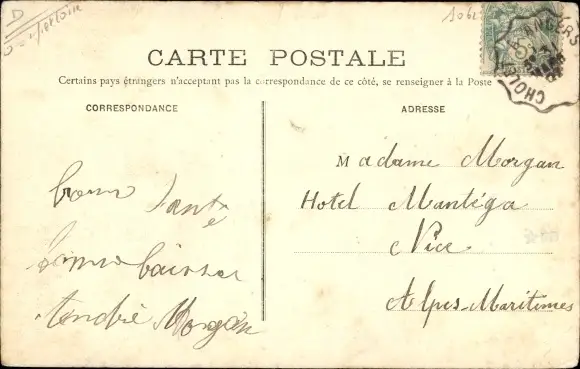 D
1061
ANGERS
CHOL
CARTE POSTALE
Certains pays étrangers n'acceptant pas la correspondance de ce côté, se renseigner à la Poste
CORRESPONDANCE
ADRESSE
Madame Morgan
Hotel Mantéga
Nice
Alpes-Maritimes
bonne Santé
bonne baiser
André Morgan